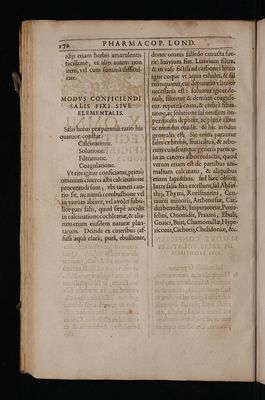 172 PHARMACOP. LOND.
alijs etiam herbis amarulentis
facillimè; ex alijs autem non
item, vel cum summa difficul-
tate.
MODVS CONFICIENDI
SALIS FIXI SIVE
ELEMENTALIS.
Salis huius præparandi ratio his
quatuor constat:
Calcinatione.
Solutione.
Filtratione.
Coagulatione.
Vt ritè igitur conficiatur, primò
omnium cineres albi calcinatione
procurandi sunt, ubi tamen cau-
tio sit, ne nimia combustione vel
in vitrum abeant, vel avolet subti-
lior pars salis, quod sæpè accidit
in calcinatione cochleariæ, & alia-
rum etiam eiusdem naturæ plan-
tarum. Deinde ex cineribus (af-
fusâ aquâ clarâ, purâ, ebulliente,
donec omnis salsedo extracta fue-
rit) lixivium fiat. Lixivium filtra,
& in vase fictili ad carbones lento
igne coque vt aqua exhalet, & sal
relinquatur, cui depurato
necessaria est: solvatur igitur de-
nuò, filtretur & demùm coagule-
tur repetitâ coctione, & crebrâ filtra-
tione, &
purissimum depositis, ac planè albus
ac mundus evadit. & hic modus
generalis est. Sic enim parantur
sales ex herbis, fruticibus, & arbo-
rum cuiuscunque generis particu-
lis in cineres albos redactis, quod
verum etiam est de partibus ani-
malium calcinatis, & aliquibus
etiam lapidibus.
Inter salia fixa excellunt, sal Absin-
thij, Thymi, Rosmarini, Cen-
taurei minoris, Arthemisiæ, Car-
dui benedicti, Imperatoriæ, Petro-
selini, Ononidis, Fraxini, Ebuli,
Guaici, Buxi, Chamomillæ, Hype-
riconis, Cichorij, Chelidoniæ, &c.